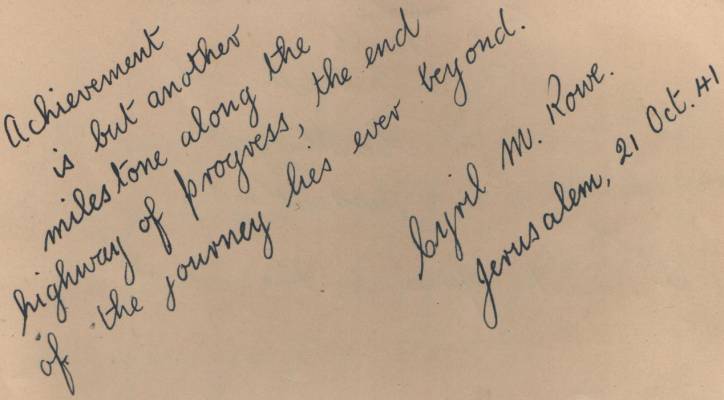 Achievement
is but another
milestone along the
highway of progress, the end
of the journey lies ever beyond.
Cyril M. Rowe.
Jerusalem, 21 Oct. 41